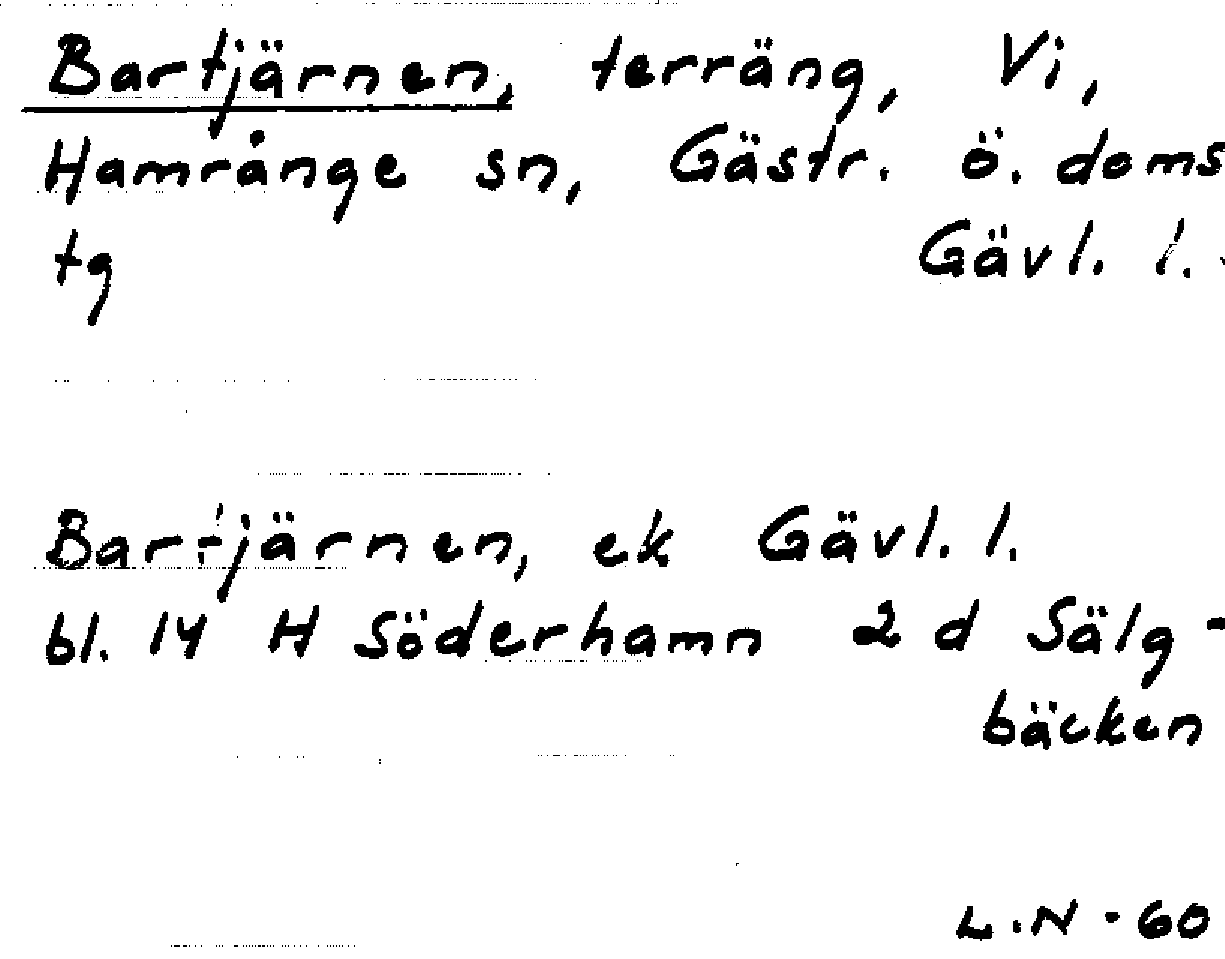 Bartjärnen, terräng, Vi,
Hamrånge sn, Gästr. ö. doms
tg Gävl. l.
Bartjärnen, ek Gävl. l.
bl. 14 H Söderhamn 2 d Sälg-
bäcken
L.N-60